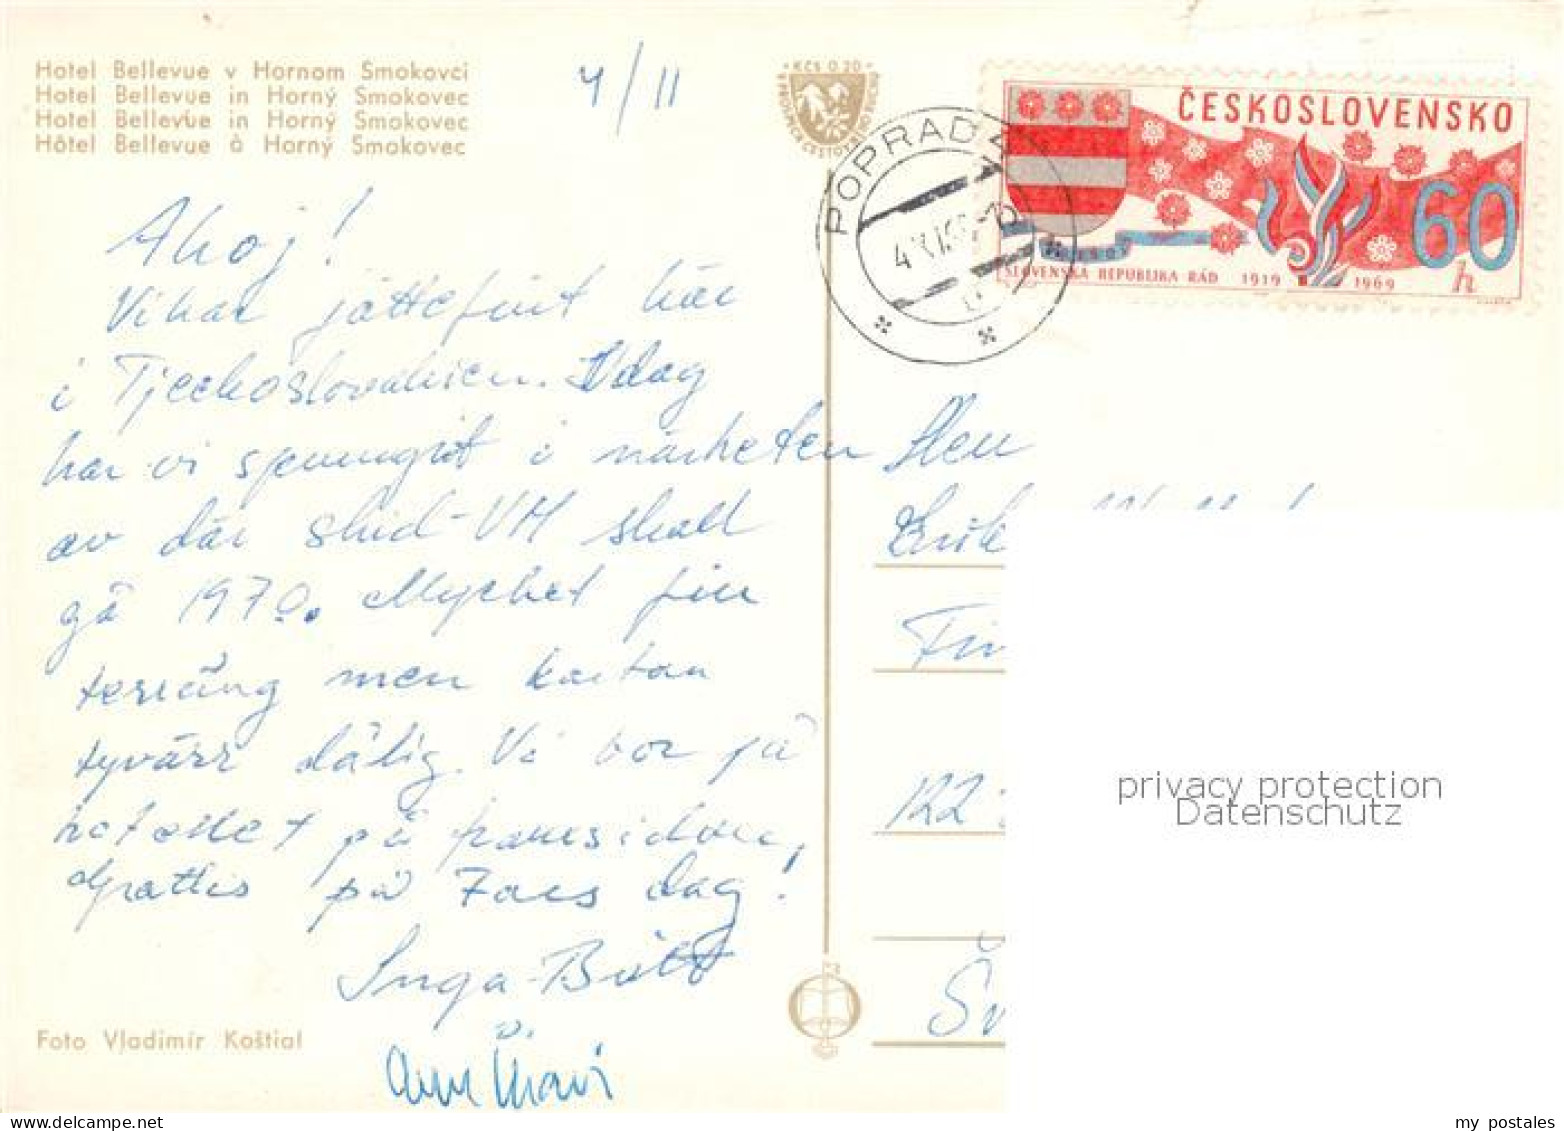 Hotel Bellevue v Hornom Smokovci
Hotel Bellevue in Horný Smokovec
Hotel Bellevue in Horný Smokovec
Hôtel Bellevue à Horný Smokovec
4/11
KČS 0,20
ČESKOSLOVENSKO
60
h
SLOVENSKA REPUBLIKA RÁD 1919 1969
PREŠOV
POPRAD 2
Ahoj!
Vi har jättefint här
i Tjeckoslovakien. Idag
har vi sprungit i närheten
av där skid-VM skall
gå 1970. Mycket fin
terräng men kartan
tyvärr dålig. Vi bor på
hotellet på framsidan,
Grattis på Fars dag!
Inga-Britt
Foto Vladimír Koštial
Herr
Erik
122
privacy protection
Datenschutz
my postales